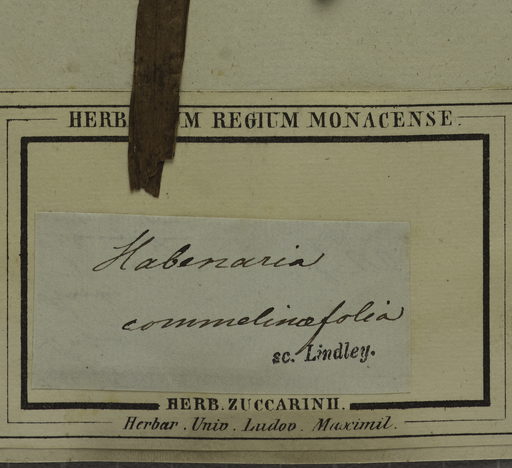 HERB UM REGIUM MONACENSE.
Habenaria
commelinæfolia
sc. Lindley.
HERB. ZUCCARINII.
Herbar. Univ. Ludov. Maximil.